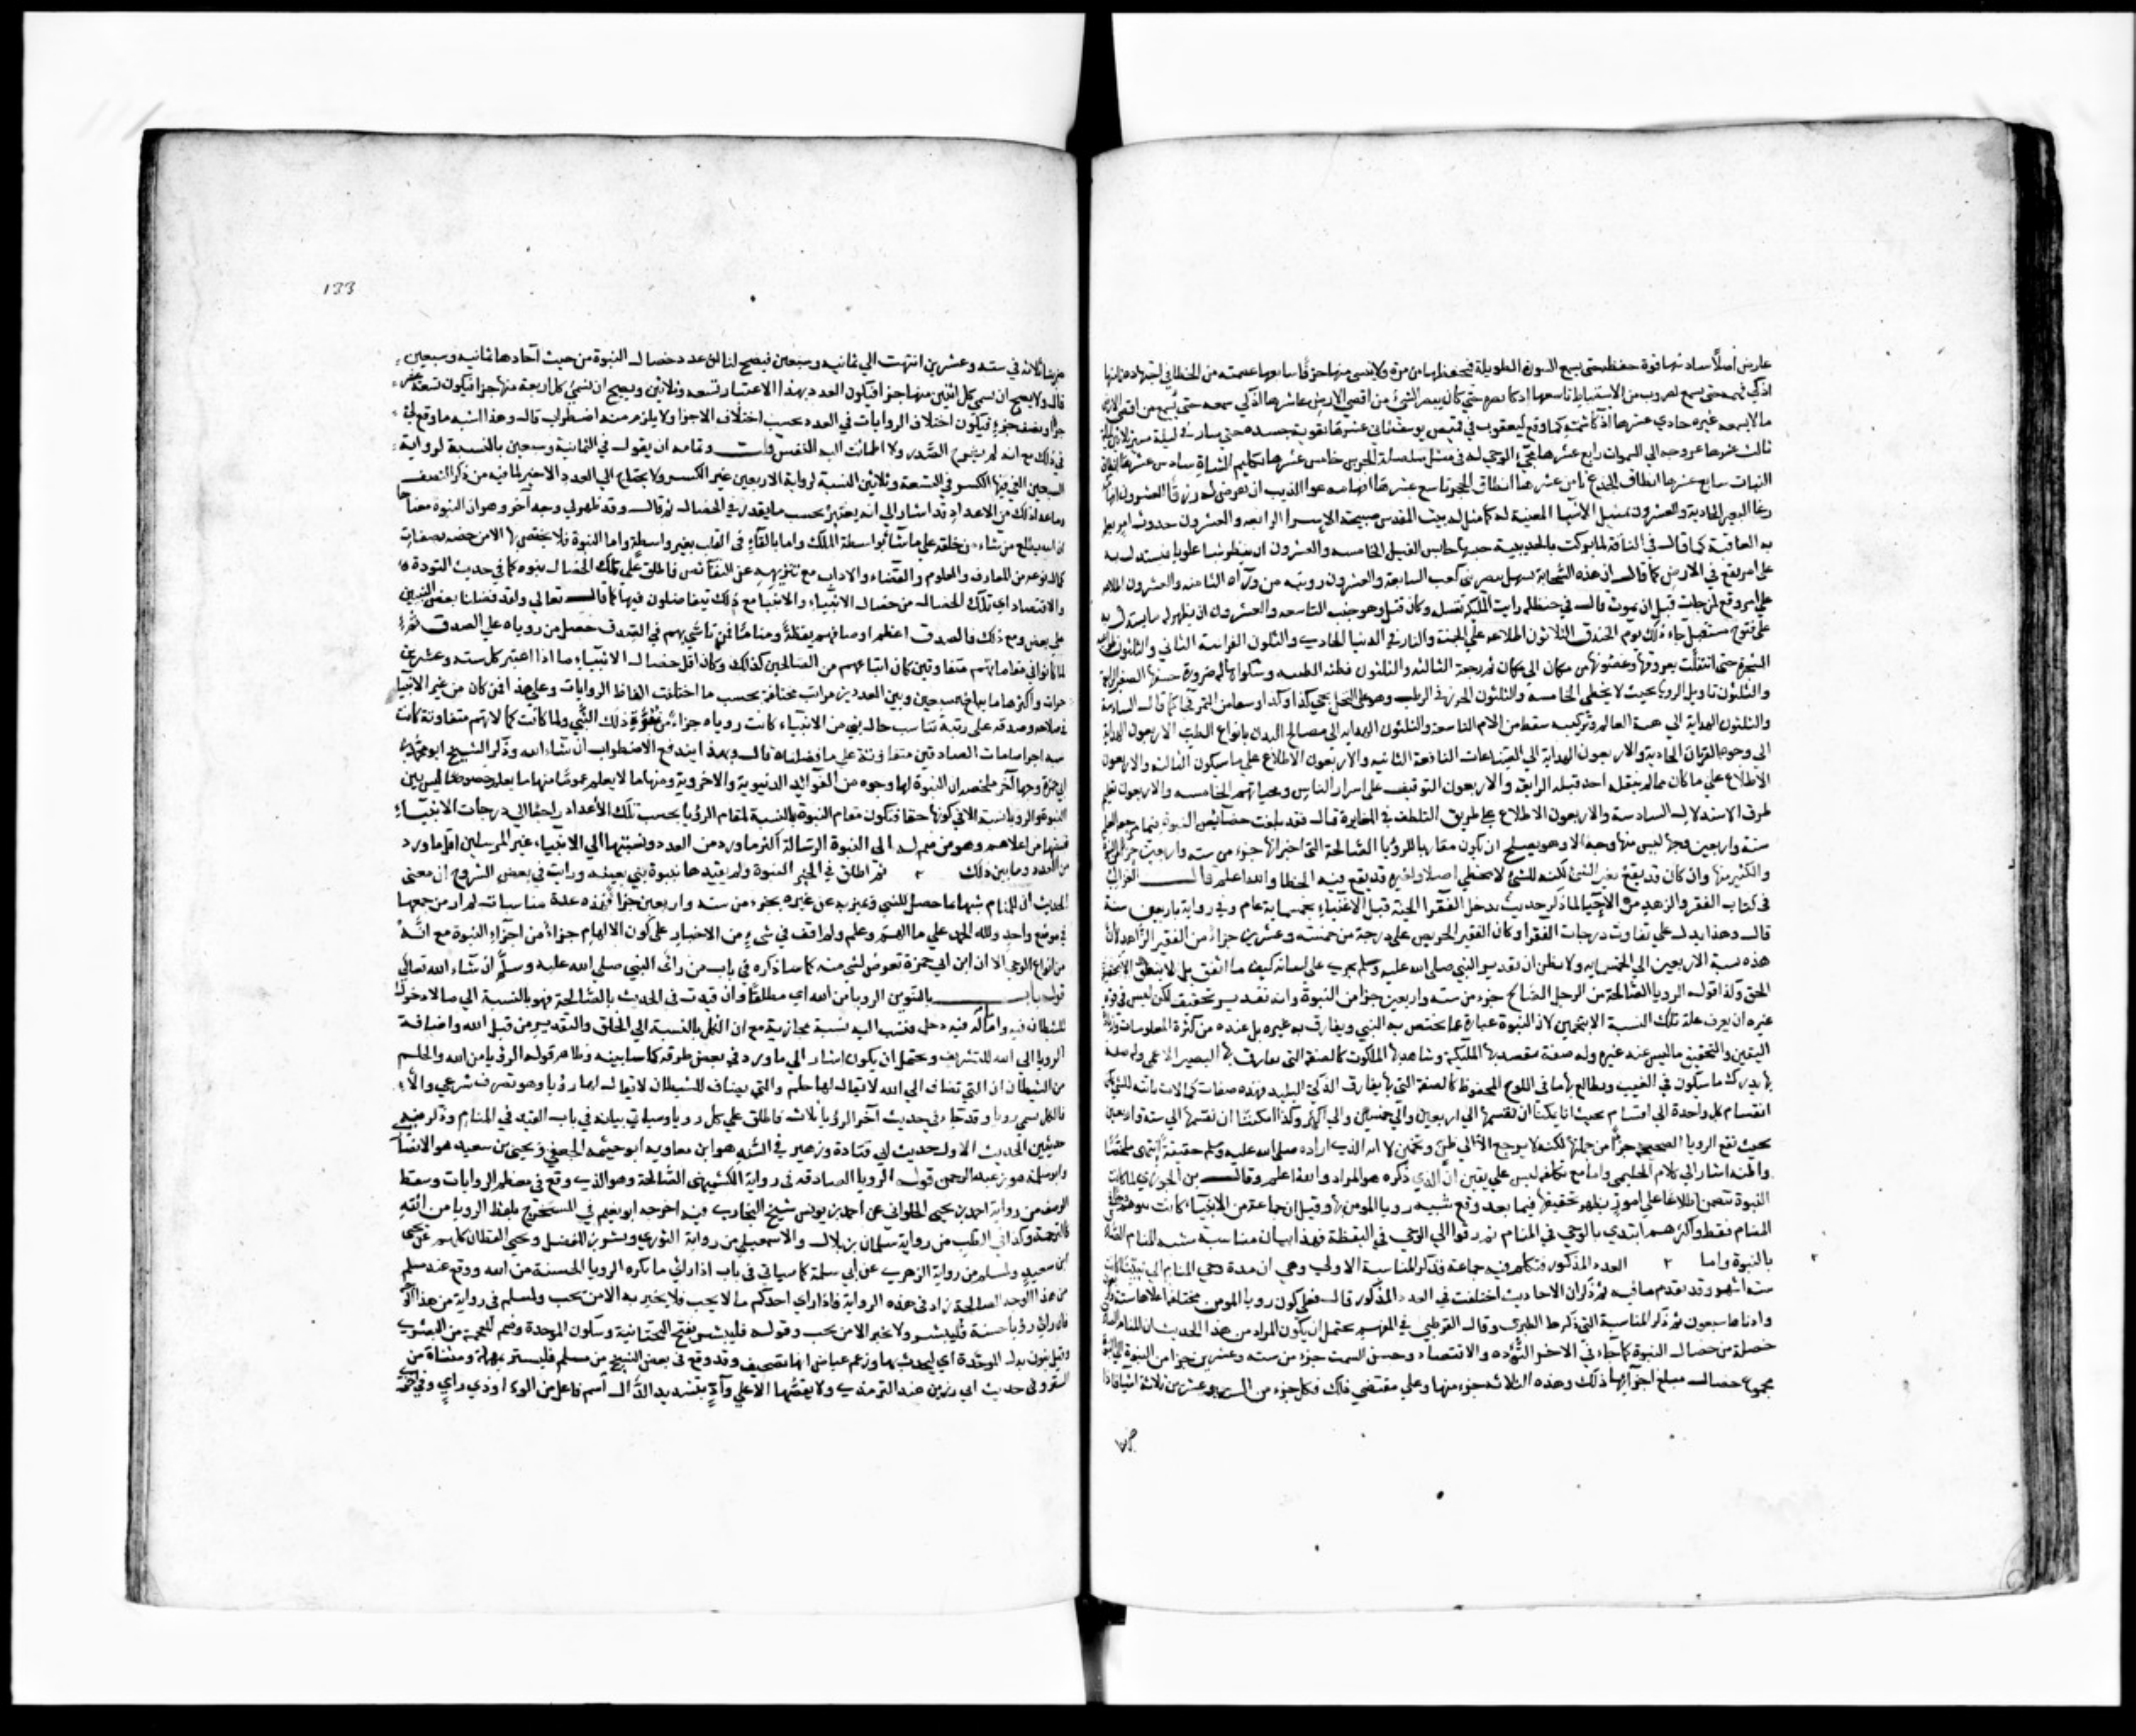 عارض اصلا سادسها قوة حفظه حتى يسمع السورة الطويلة فيحفظها من مرة ولا ينسى منها حرفا سابعها عصمته من الخطا في اجتهاده ثامنها
اذكى فهمه حتى يسمع لضروب من الاستنباط تاسعها اذكا بصره حتى كان يبصر الشئ من اقصى الارض عاشرها اذكى سمعه حتى يسمع من اقصى الارض
ما لا يسمعه غيره حادي عشرها اذكا شمه كما وقع ليعقوب في قميص يوسف ثاني عشرها تقوية جسده حتى سار في ليلة مسيرة ثلاثين ليلة
ثالث عشرها عروجه الى السموات رابع عشرها مجئ الوحي له في مثل صلصلة الجرس خامس عشرها تكليم الشاة سادس عشرها انطاق
النبات سابع عشرها انطاق الجذع ثامن عشرها انطاق الحجر تاسع عشرها افهامه عوا الذيب ان يفرض له رزقا العشرون افهامه
رغا البعير الحادية والعشرون
به العاقبة كما قال في الناقة لما بركت بالحديبية حبسها حابس الفيل الخامسه والعشرون ان ينظر شيا علويا فيستدل به
على امر يقع في الارض كما قال ان هذه السحابة تستهل بنصر بني كعب السابعة والعشرون رويته من ورآه الثامنه والعشرون اطلاعه
على امر وقع لمن مات قبل ان يموت قال في حنظله رايت الملئكة تغسله وكان قتل وهو جنب التاسعه والعشرون ان يظهر له ما يستدل به
على فتوح مستقبل جاء ذلك يوم الخندق الثلاثون اطلاعه على الجنة والنار في الدنيا الحادي والثلثون الفراسة الثاني والثلثون
الشجرة حتى انتقلت بعروقها وغصونها من مكان الى مكان ثم رجعة الثالثه والثلثون قصة الظبيه وشكواها له ضرورة خشفها الصغير الرابعة
والثلثون تاويل الرويا بحيث لا يخطى الخامسه والثلثون الحزر في الرطب وهو على النخل يجي كذا وكذا وسقا من التمر فجا كما قال السادسة
والثلثون الهداية الى
الى وجوه القربات الحاديه والاربعون الهداية الى الصناعات النافعة الثانيه والاربعون الاطلاع على ما سيكون الثالثه والاربعون
الاطلاع على ما كان مما لم ينقله احد قبله الرابعة والاربعون التوقيف على اسرار الناس ومخبآتهم الخامسه والاربعون تعليم
طرق الاستدلال السادسة والاربعون الاطلاع على طريق التلطف في المعاشرة قال فقد بلغت خصائص النبوة فيما مرجعه العلم
ستة واربعين وجها ليس منها وجه الا وهو يصلح ان يكون مقاربا للرؤيا الصالحة التي اخبر انها جزء من ستة واربعين جزءا من النبوة
والكثير منها وان كان قد يقع لغير النبي لكنه للنبي لا يخطي اصلا ولغيره قد يقع فيه الخطا والله اعلم وقال الغزالي
في كتاب الفقر والزهد من الاحيا لما ذكر حديث يدخل الفقرا الجنة قبل الاغنياء بخمسماية عام وفي رواية باربعين سنة
قال وهذا يدل على تفاوت درجات الفقرا وكان الفقير الحريص على درجة من خمسة وعشرين جزءا من الفقير الزاهد لان
هذه نسبة الاربعين الى الخمسمايه ولا يظن ان تقدير النبي صلى الله عليه وسلم يجري على لسانه كيف ما اتفق بل لا ينطق الا بحقيقة
الحق وكذا قوله الرويا الصالحة من الرجل الصالح جزء من سته واربعين جزءا من النبوة وانه تقدير تحقيق لكن ليس في قوة
غيره ان يعرف علة تلك النسبة الا بتخمين لان النبوة عبارة عما يختص به النبي ويفارق به غيره بل عنده من كثرة المعلومات وزيادة
اليقين والتحقيق ما ليس عند غيره وله صفة يبصر بها الملئكة ويشاهد بها الملكوت كالصفة التي يفارق بها البصير الاعمى وله صفة
بها يدرك ما سيكون في الغيب ويطالع بها ما في اللوح المحفوظ كالصفة التي بها يفارق الذكي البليد فهذه صفات كمالات ثابتة للنبي
انقسام كل واحدة الى اقسام بحيث انا يمكننا ان نقسمها الى اربعين والى خمسين والى اكثر وكذا يمكننا ان نقسمها الى سته واربعين
بحيث تقع الرويا الصحيحه جزءا من جملتها لكنه لا يرجع الا الى ظن وتخمين لا انه الذي اراده صلى الله عليه وسلم حقيقة انتهى ملخصا
واظنه اشار الى كلام الحليمي واما مع تكلفه ليس على يقين ان الذي ذكره هو المراد والله اعلم وقال بن الجوزي لما كانت
النبوة تتضمن اطلاعا على امور يظهر تحقيقها فيما بعد وقع تشبيه رويا المومن بها وقيل ان جماعة من الانبياء كانت نبوتهم وحيا
المنام فقط واكثرهم ابتدي بالوحي في المنام ثم رقوا الى الوحي في اليقظة فهذا بيان مناسبة تشبيه المنام الصادق
بالنبوة واما العدد المذكور فتكلم فيه جماعة فذكر المناسبة الاولى وهي ان مدة وحي المنام الى نبينا كانت
سته اشهر وقد تقدم ما فيه ثم ذكر ان الاحاديث اختلفت في العدد المذكور قال فعلى كون رويا المومن مختلفة اعلاها ستة واربعون
وادناها سبعون ثم ذكر المناسبة التي ذكرها الطبري وقال القرطبي في المفهم يحتمل ان يكون المراد من هذا الحديث ان المنام الصادق
خصلة من خصال النبوة كما جاء في الاخر التؤده والاقتصاد وحسن السمت جزء من سته وعشرين جزءا من النبوة اي النبوة
مجموع خصال مبلغ اجزائها ذلك وهذه الثلاثه جزء منها وعلى مقتضى ذلك فكل جزء من السته وعشرين ثلاثة اشيا فاذا
133
ضربنا ثلاثة في سته وعشرين انتهت الى ثمانيه وسبعين فيصح لنا ان عدد خصال النبوة من حيث آحادها ثمانيه وسبعين
قال ولا يصح ان يسمى كل اثنين منها جزءا فيكون العدد بهذا الاعتبار تسعه وثلاثين ويصح ان نسمى كل اربعة منها جزءا فيكون تسعة عشر
جزا ونصف جزء فيكون اختلاف الروايات في العدد بحسب اختلاف الاجزا ولا يلزم منه اضطراب قال وهذا اشبه ما وقع لي
في ذلك مع انه لم ينشرح الصدر ولا اطمانت اليه النفس قلت وتمامه ان يقول في الثمانية وسبعين بالنسبة لرواية
السبعين التي فيها الكسر وفي التسعة وثلاثين بالنسبة لرواية الاربعين غير الكسر ولا يحتاج الى العدد الاخير لما فيه من ذكر النصف
وما عدا ذلك من الاعداد قد اشار الى انه يعتبر بحسب ما يقدر في الخصال ثم قال وقد ظهر لي وجه آخر وهو ان النبوة معناها
ان الله يطلع من يشاء من خلقه على ما يشآ اما بواسطة الملك واما بالقاء في القلب بغير واسطة واما النبوة فلا يختص بها الا من خصه بصفات
كمال نوعه من المعارف والعلوم والفضاء والاداب مع تنزيهه عن النقائص فاطلق على تلك الخصال نبوه كما في حديث التؤدة
والاقتصاد اي تلك الخصال من خصال الانبياء والانبيا مع ذلك يتفاضلون فيها كما قال تعالى ولقد فضلنا بعض النبيين
على بعض ومع ذلك فالصدق اعظم اوصافهم يقظة ومناما فمن تاسى بهم في الصدق حصل من روياه على الصدق ثم
لما كانوا في مقاماتهم متفاوتين كان اتباعهم من الصالحين كذلك وكان اقل خصال الانبياء ما اذا اعتبر كل سته وعشرين
جزءا واكثرها ما يبلغ سبعين وبين العددين مراتب مختلفة بحسب ما اختلفت الفاظ الروايات وعلى هذا فمن كان من غير الانبيا
في صلاحه وصدقه على رتبة تناسب حال نبي من الانبياء كانت روياه جزءا من نبوة ذلك النبي ولما كانت كمالاتهم متفاوتة كانت
نسبه اجزا منامات الصادقين متفاوتة على ما فصلناه قال وبهذا يندفع الاضطراب ان شاء الله وذكر الشيخ ابو محمد بن
ابي جمرة وجها آخر ملخصه ان النبوة لها وجوه من الفوائد الدنيوية والاخروية
النبوة والرويا نسبة الا في كونها حقا فيكون مقام النبوة بالنسبة لمقام الرؤيا بحسب تلك الاعداد راجعا الى درجات الانبياء
فنسبتها من اعلاهم وهو من ضم له الى النبوة الرسالة اكثر ما ورد من العدد ونسبتها الى الانبياء غير المرسلين اقل ما ورد
من العدد وما بين ذلك ثم اطلق في الخبر النبوة ولم يقيدها بنبوة نبي بعينه ورايت في بعض الشروح ان معنى
الحديث ان للمنام شبها بما حصل للنبي وتميز به عن غيره بجزء من سته واربعين جزءا فهذه عدة مناسبات لم ار من جمعها
في موضع واحد ولله الحمد على ما الهم وعلم ولم اقف في شيء من الاخبار على كون الالهام جزءا من اجزاء النبوة مع انه
من انواع الوحي الا ان ابن ابي جمرة تعرض لشئ منه كما ساذكره في باب من راى النبي صلى الله عليه وسلم ان شاء الله تعالى
قوله باب بالتنوين الرويا من الله اي مطلقا وان قيدت في الحديث بالصالحة فهو بالنسبة الى ما لا دخول
للشيطان فيه واما ما له فيه دخل فنسب اليه نسبة مجازية مع ان الكل بالنسبة الى الخلق والتقدير من قبل الله واضافة
الرويا الى الله للتشريف ويحتمل ان يكون اشار الى ما ورد في بعض طرقه كما سابينه وظاهر قوله الرؤيا من الله والحلم
من الشيطان ان التي تضاف الى الله لا يقال لها حلم والتي يضاف للشيطان لا يقال لها رؤيا وهو تصرف شرعي والا
فالكل يسمى رويا وقد جاء في حديث آخر الرؤيا ثلاث فاطلق على كل رويا وسياتي بيانه في باب القيد في المنام وذكر فيه
حديثين الحديث الاول حديث ابي قتادة وزهير في السند هو ابن معاويه ابو خيثمه الجعفي ويحيى بن سعيد هو الانصاري
وابو سلمة هو بن عبد الرحمن قوله الرويا الصادقه في رواية الكشميهني الصالحة وهو الذي وقع في معظم الروايات وسقط
الوصف من رواية احمد بن يحيى الحلواني عن احمد بن يونس شيخ البخاري فيه اخرجه ابو نعيم في المستخرج بلفظ الرويا من الله
كالترجمة وكذا في الطب من رواية سليمان بن بلال والاسمعيلي من رواية الثوري وبشر بن المفضل ويحيى القطان كلهم عن يحيى
ابن سعيد ولمسلم من رواية الزهري عن ابي سلمة كما سياتي في باب اذا رأى ما يكره الرويا الحسنة من الله ووقع عند مسلم
من هذا الوجه الصالحة زاد في هذه الرواية فاذا راى احدكم ما لا يحب فلا يخبر به الا من يحب ولمسلم في رواية من هذا الوجه
فان رأى رؤيا حسنة فليبشر ولا يخبر الا من يحب وقوله فليبشر بفتح التحتانية وسكون الموحدة وضم المعجمة من البشرى
وقيل بنون بدل الموحدة اي ليحدث بها وزعم عياض انها تصحيف وقد وقع في بعض النسخ من مسلم فليستر بمهملة ومثناة من
الستر وفي حديث ابي رزين عند الترمذي ولا يقصها الا على وآدٍّ بتشديد الدال اسم فاعل من الود او ذي راي